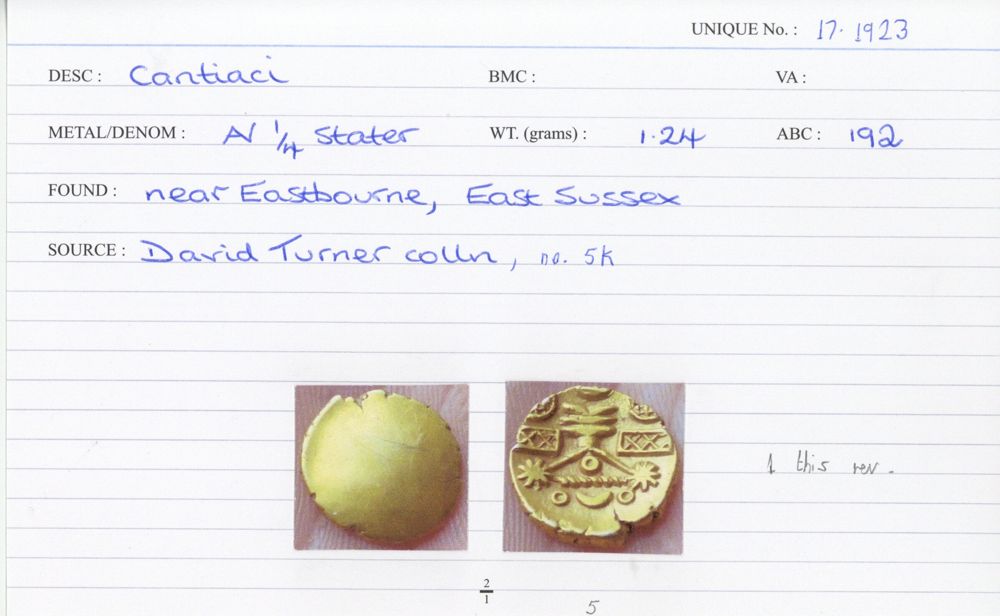 UNIQUE No. : 17. 1923
DESC : Cantiaci BMC : VA :
METAL/DENOM : AV 1/4 Stater WT. (grams) : 1.24 ABC : 192
FOUND : near Eastbourne, East Sussex
SOURCE : David Turner colln, no. 5k
1 this rev.
2/1
5